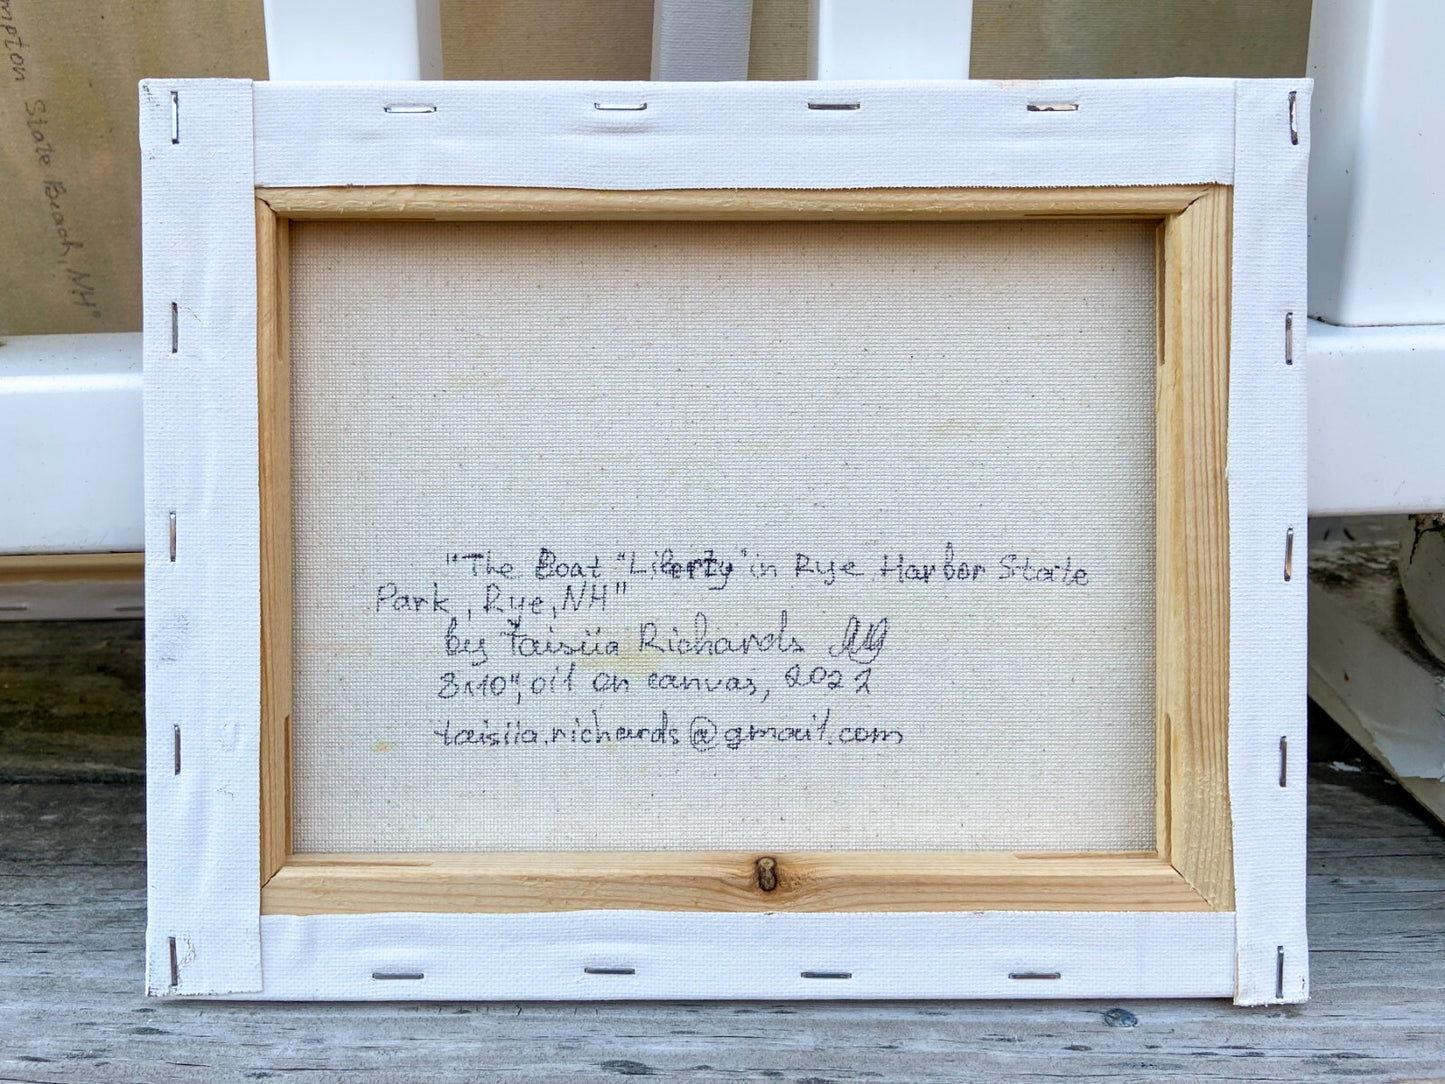 "The Boat "Liberty" in Rye Harbor State
Park, Rye, NH"
by Taisiia Richards
8x10", oil on canvas, 2022
taisiia.richards@gmail.com
State Beach, NH"